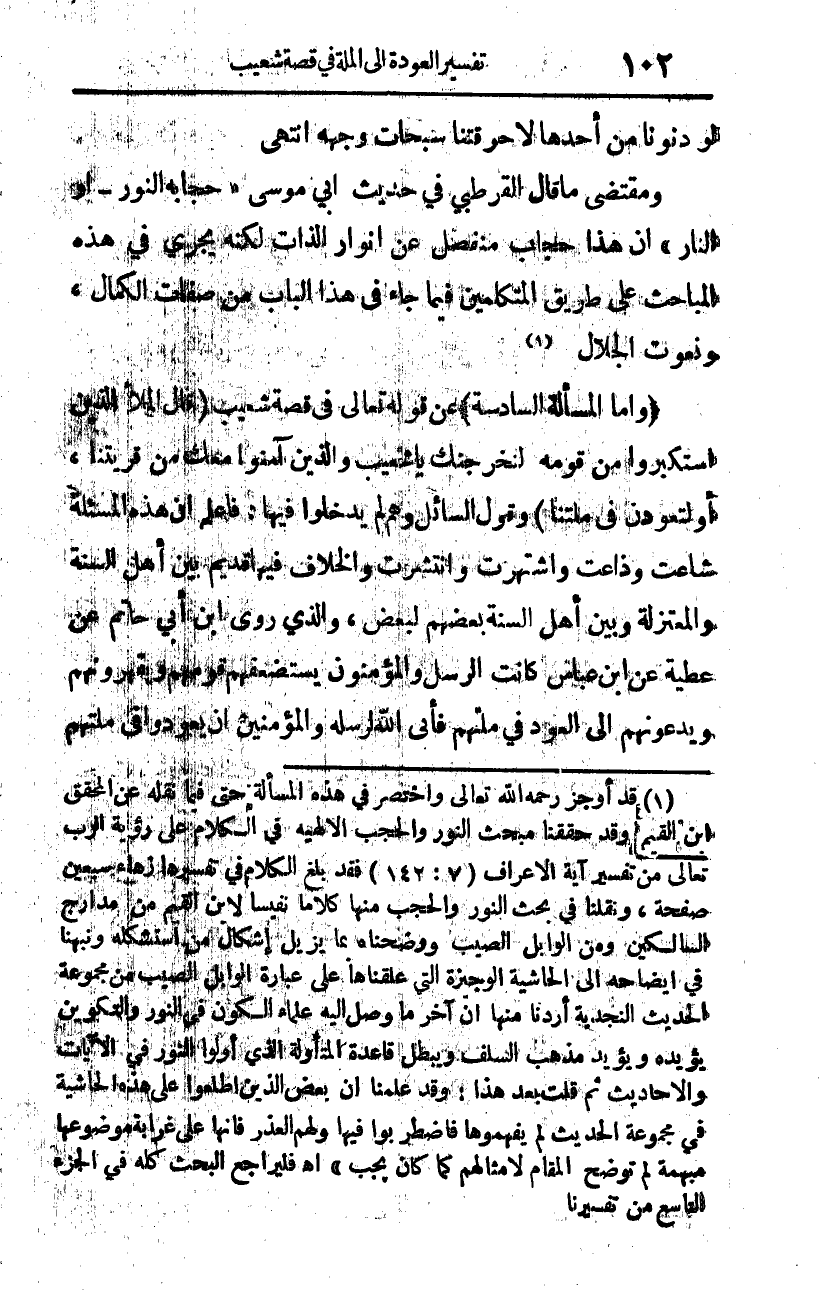 ١٠٢ تفسير العودة الى الملة في قصة شعيب
لو دنونا من أحدها لاحرقتنا سبحات وجهه انتهى
ومقتضى ماقال القرطبي في حديث ابي موسى « حجابه النور ــ او
النار » ان هذا حجاب منفصل عن انوار الذات لكنه يجري في هذه
المباحث على طريق المتكلمين فيما جاء في هذا الباب من صفات الكمال ،
ونعوت الجلال (١)
﴿واما المسألة السادسة﴾ عن قوله تعالى في قصة شعيب (قال الملأ الذين
استكبروا من قومه لنخرجنك ياشعيب والذين آمنوا معك من قريتنا ،
أو لتعودن في ملتنا) وقول السائل وهم لم يدخلوا فيها : فاعلم ان هذه المسئلة
شاعت وذاعت واشتهرت وانتشرت والخلاف فيها قديم بين أهل السنة
والمعتزلة وبين أهل السنة بعضهم لبعض ، والذي روى ابن أبي حاتم عن
عطية عن ابن عباس كانت الرسل والمؤمنون يستضعفهم قومهم ويقهرونهم
ويدعونهم الى العود في ملتهم فأبى الله لرسله والمؤمنين ان يعودوا في ملتهم
(١) قد أوجز رحمه الله تعالى واختصر في هذه المسألة حتى فيما نقله عن المحقق
ابن القيم وقد حققنا مبحث النور والحجب الالهيه في الكلام على رؤية الرب
تعالى من تفسير آية الاعراف ( ٧ : ١٤٢ ) فقد بلغ الكلام في تفسيرها زهاء سبعين
صفحة ، ونقلنا في بحث النور والحجب منها كلاما نفيسا لابن القيم من مدارج
السالكين ومن الوابل الصيب ووضحناه بما يزيل إشكال من استشكله ونبهنا
في ايضاحه الى الحاشية الوجيزة التي علقناها على عبارة الوابل الصيب من مجموعة
الحديث النجدية أردنا منها ان آخر ما وصل اليه علماء الكون في النور والتكوين
يؤيده ويؤيد مذهب السلف ويبطل قاعدة المتأولة الذي أولوا النور في الآيات
والاحاديث ثم قلت بعد هذا : وقد علمنا ان بعض الذين اطلعوا على هذه الحاشية
في مجموعة الحديث لم يفهموها فاضطربوا فيها ولهم العذر فانها على غرابة موضوعها
مبهمة لم توضح المقام لامثالهم كما كان يجب » اه فليراجع البحث كله في الجزء
التاسع من تفسيرنا